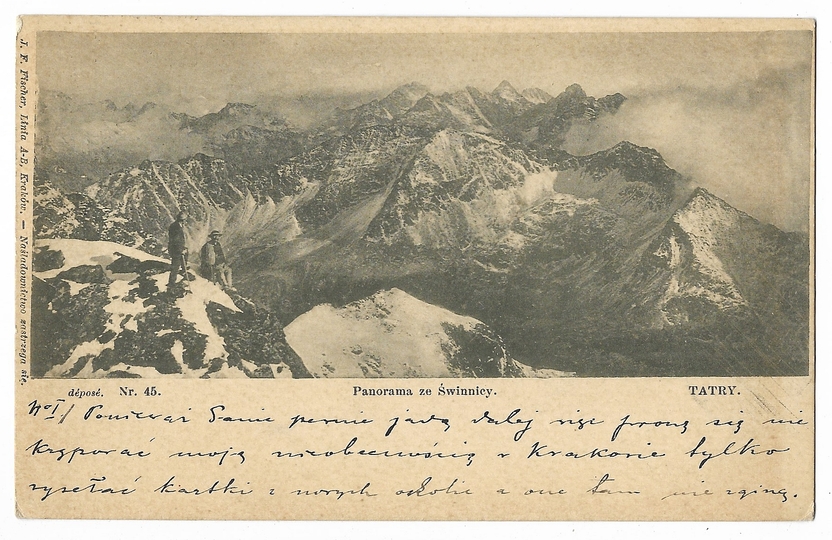 J. F. Fischer, Linia A-B, Kraków. — Naśladownictwo zastrzega się.
déposé. Nr. 45. Panorama ze Świnnicy. TATRY.
No I/ Ponieważ Panie pewnie jadą dalej więc proszę się nie
krępować moją nieobecnością w Krakowie tylko
wysełać kartki z nowych okolic a one tam nie zginą.